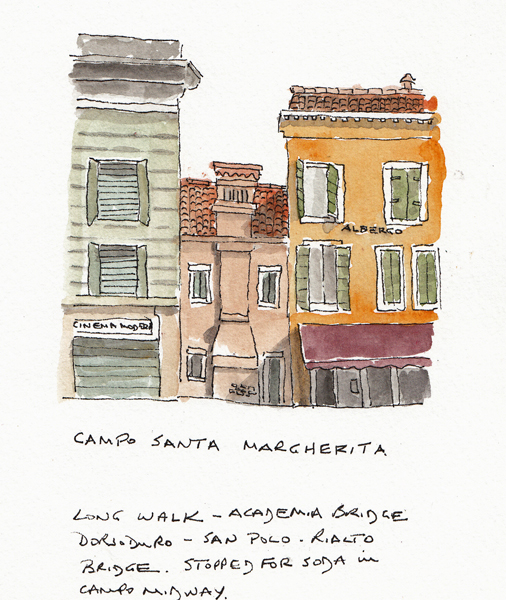 ALBERGO
CINEMA MODERN
CAMPO SANTA MARGHERITA
LONG WALK - ACADEMIA BRIDGE
DORSODURO - SAN POLO - RIALTO
BRIDGE. STOPPED FOR SODA in
CAMPO MIDWAY.